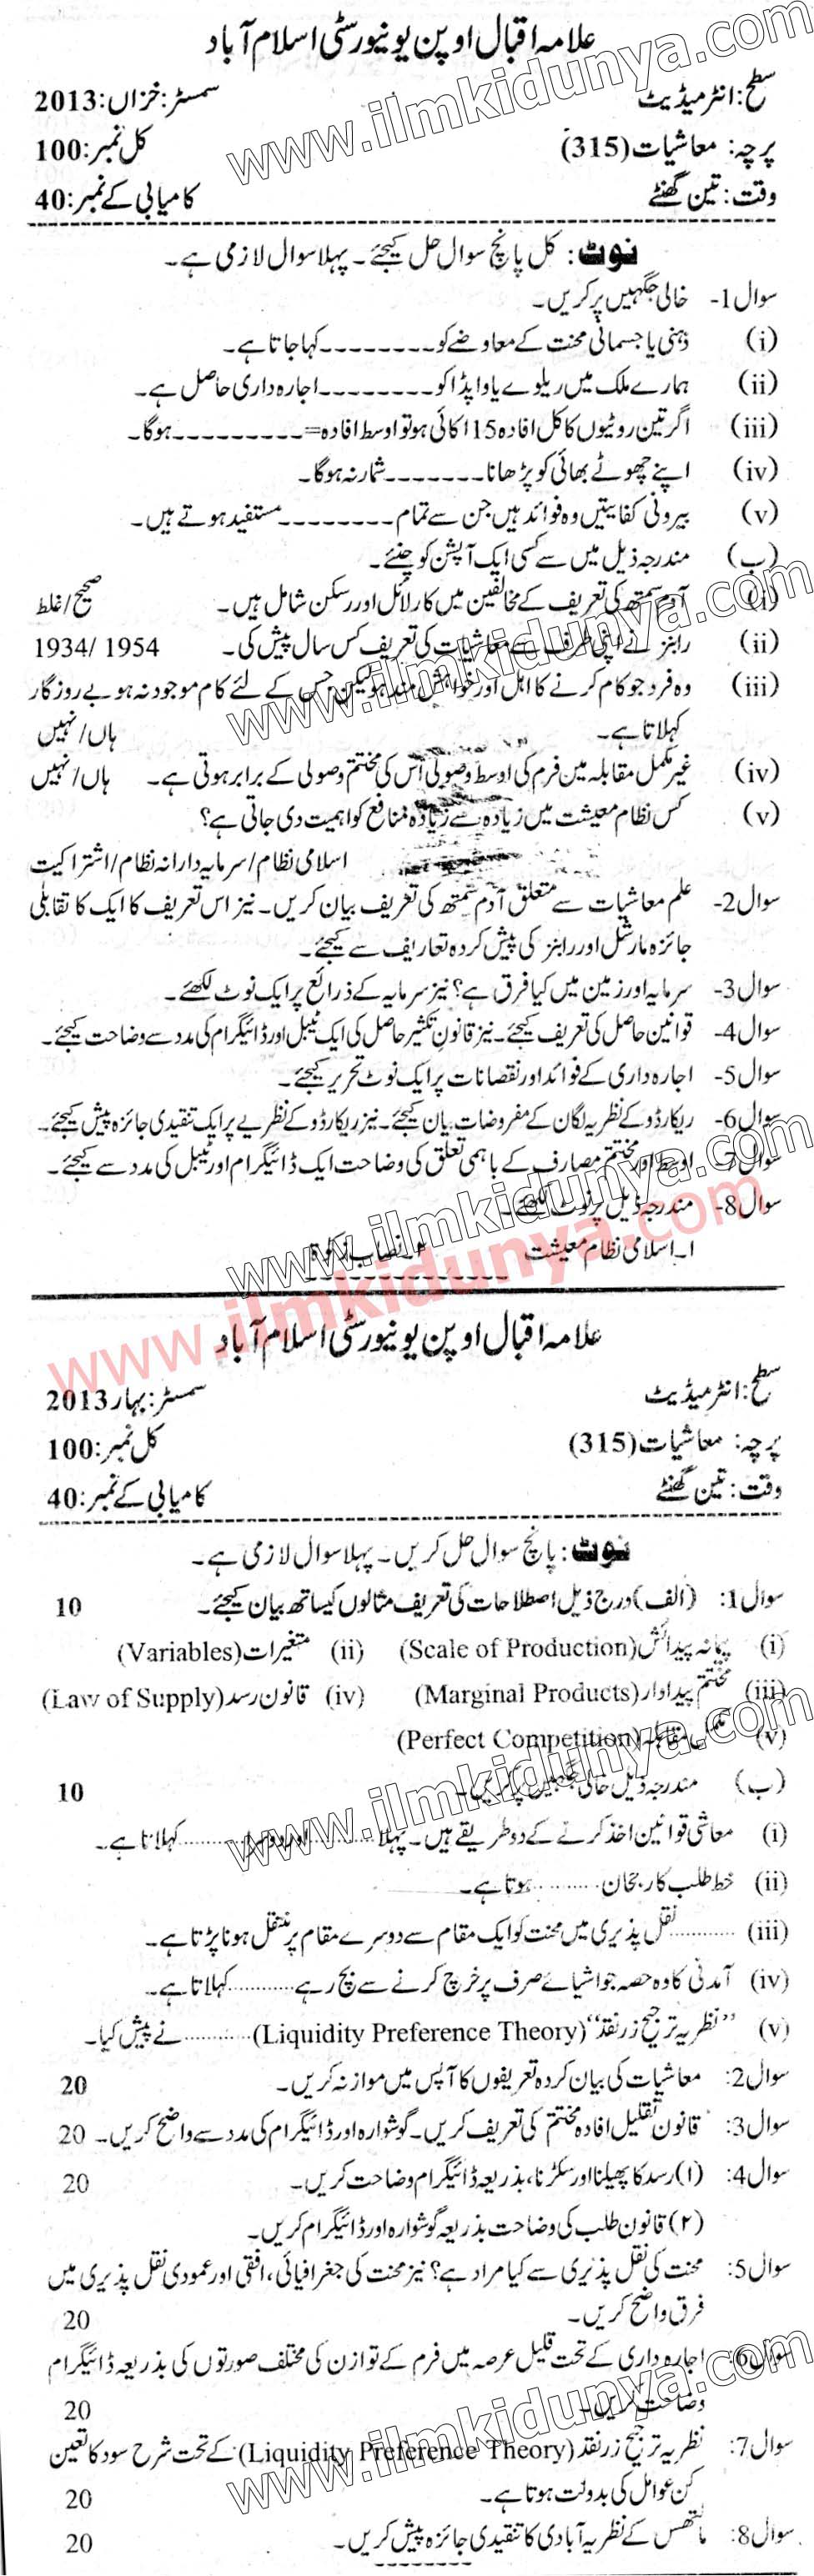 علامہ اقبال اوپن یونیورسٹی اسلام آباد
سطح: انٹرمیڈیٹ سمسٹر: خزاں: 2013
پرچہ: معاشیات (315) کل نمبر: 100
وقت: تین گھنٹے کامیابی کے نمبر: 40
نوٹ: کل پانچ سوال حل کیجئے۔ پہلا سوال لازمی ہے۔
سوال 1- خالی جگہیں پر کریں۔
(i) ذہنی یا جسمانی محنت کے معاوضے کو--------- کہا جاتا ہے۔
(ii) ہمارے ملک میں ریلوے یا واپڈا کو--------- اجارہ داری حاصل ہے۔
(iii) اگر تین روٹیوں کا کل افادہ 15 اکائی ہو تو اوسط افادہ=--------- ہوگا۔
(iv) اپنے چھوٹے بھائی کو پڑھانا------- شمار نہ ہوگا۔
(v) بیرونی کفایتیں وہ فوائد ہیں جن سے تمام-------- مستفید ہوتے ہیں۔
(ب) مندرجہ ذیل میں سے کسی ایک آپشن کو چنئے۔
(i) آدم سمتھ کی تعریف کے مخالفین میں کارلائل اور رسکن شامل ہیں۔ صحیح/غلط
(ii) رابنز نے اپنی طرف سے معاشیات کی تعریف کس سال پیش کی۔ 1934/ 1954
(iii) وہ فرد جو کام کرنے کا اہل اور خواہش مند ہو لیکن جس کے لئے کام موجود نہ ہو بے روزگار
کہلاتا ہے۔ ہاں/نہیں
(iv) غیر مکمل مقابلہ میں فرم کی اوسط وصولی اس کی مختتم وصولی کے برابر ہوتی ہے۔ ہاں/نہیں
(v) کس نظام معیشت میں زیادہ سے زیادہ منافع کو اہمیت دی جاتی ہے؟
اسلامی نظام/سرمایہ دارانہ نظام/اشتراکیت
سوال 2- علم معاشیات سے متعلق آدم سمتھ کی تعریف بیان کریں۔ نیز اس تعریف کا ایک کا تقابلی
جائزہ مارشل اور رابنز کی پیش کردہ تعاریف سے کیجئے۔
سوال 3- سرمایہ اور زمین میں کیا فرق ہے؟ نیز سرمایہ کے ذرائع پر ایک نوٹ لکھئے۔
سوال 4- قوانین حاصل کی تعریف کیجئے۔ نیز قانون تکثیر حاصل کی ایک ٹیبل اور ڈائیگرام کی مدد سے وضاحت کیجئے۔
سوال 5- اجارہ داری کے فوائد اور نقصانات پر ایک نوٹ تحریر کیجئے۔
سوال 6- ریکارڈو کے نظریہ لگان کے مفروضات بیان کیجئے۔ نیز ریکارڈو کے نظریے پر ایک تنقیدی جائزہ پیش کیجئے۔
سوال 7- اوسط اور مختتم مصارف کے باہمی تعلق کی وضاحت ایک ڈائیگرام اور ٹیبل کی مدد سے کیجئے۔
سوال 8- مندرجہ ذیل پر نوٹ لکھئے۔
۱۔ اسلامی نظام معیشت ۲۔ نصاب زکوٰۃ
علامہ اقبال اوپن یونیورسٹی اسلام آباد
سطح: انٹرمیڈیٹ سمسٹر: بہار 2013
پرچہ: معاشیات (315) کل نمبر: 100
وقت: تین گھنٹے کامیابی کے نمبر: 40
نوٹ: پانچ سوال حل کریں۔ پہلا سوال لازمی ہے۔
سوال 1: (الف) درج ذیل اصطلاحات کی تعریف مثالوں کیساتھ بیان کیجئے۔ 10
(i) پیمانہ پیدائش (Scale of Production) (ii) متغیرات (Variables)
(iii) مختتم پیداوار (Marginal Products) (iv) قانون رسد (Law of Supply)
(v) مکمل مقابلہ (Perfect Competition)
(ب) مندرجہ ذیل خالی جگہیں پر کریں۔ 10
(i) معاشی قوانین اخذ کرنے کے دو طریقے ہیں۔ پہلا........... اور دوسرا........... کہلاتا ہے۔
(ii) خط طلب کا رجحان.......... ہوتا ہے۔
(iii) ........... نقل پذیری میں محنت کو ایک مقام سے دوسرے مقام پر منتقل ہونا پڑتا ہے۔
(iv) آمدنی کا وہ حصہ جو اشیائے صرف پر خرچ کرنے سے بچ رہے........... کہلاتا ہے۔
(v) ”نظریہ ترجیح زر نقد“ (Liquidity Preference Theory)........... نے پیش کیا۔
سوال 2: معاشیات کی بیان کردہ تعریفوں کا آپس میں موازنہ کریں۔ 20
سوال 3: قانون تقلیل افادہ مختتم کی تعریف کریں۔ گوشوارہ اور ڈائیگرام کی مدد سے واضح کریں۔ 20
سوال 4: (۱) رسد کا پھیلنا اور سکڑنا، بذریعہ ڈائیگرام وضاحت کریں۔ 20
(۲) قانون طلب کی وضاحت بذریعہ گوشوارہ اور ڈائیگرام کریں۔
سوال 5: محنت کی نقل پذیری سے کیا مراد ہے؟ نیز محنت کی جغرافیائی، افقی اور عمودی نقل پذیری میں
فرق واضح کریں۔ 20
سوال 6: اجارہ داری کے تحت قلیل عرصہ میں فرم کے توازن کی مختلف صورتوں کی بذریعہ ڈائیگرام
وضاحت کریں۔ 20
سوال 7: نظریہ ترجیح زر نقد (Liquidity Preference Theory) کے تحت شرح سود کا تعین
کن عوامل کی بدولت ہوتا ہے۔ 20
سوال 8: مالتھس کے نظریہ آبادی کا تنقیدی جائزہ پیش کریں۔ 20
www.ilmkidunya.com
www.ilmkidunya.com
www.ilmkidunya.com
www.ilmkidunya.com
www.ilmkidunya.com
www.ilmkidunya.com